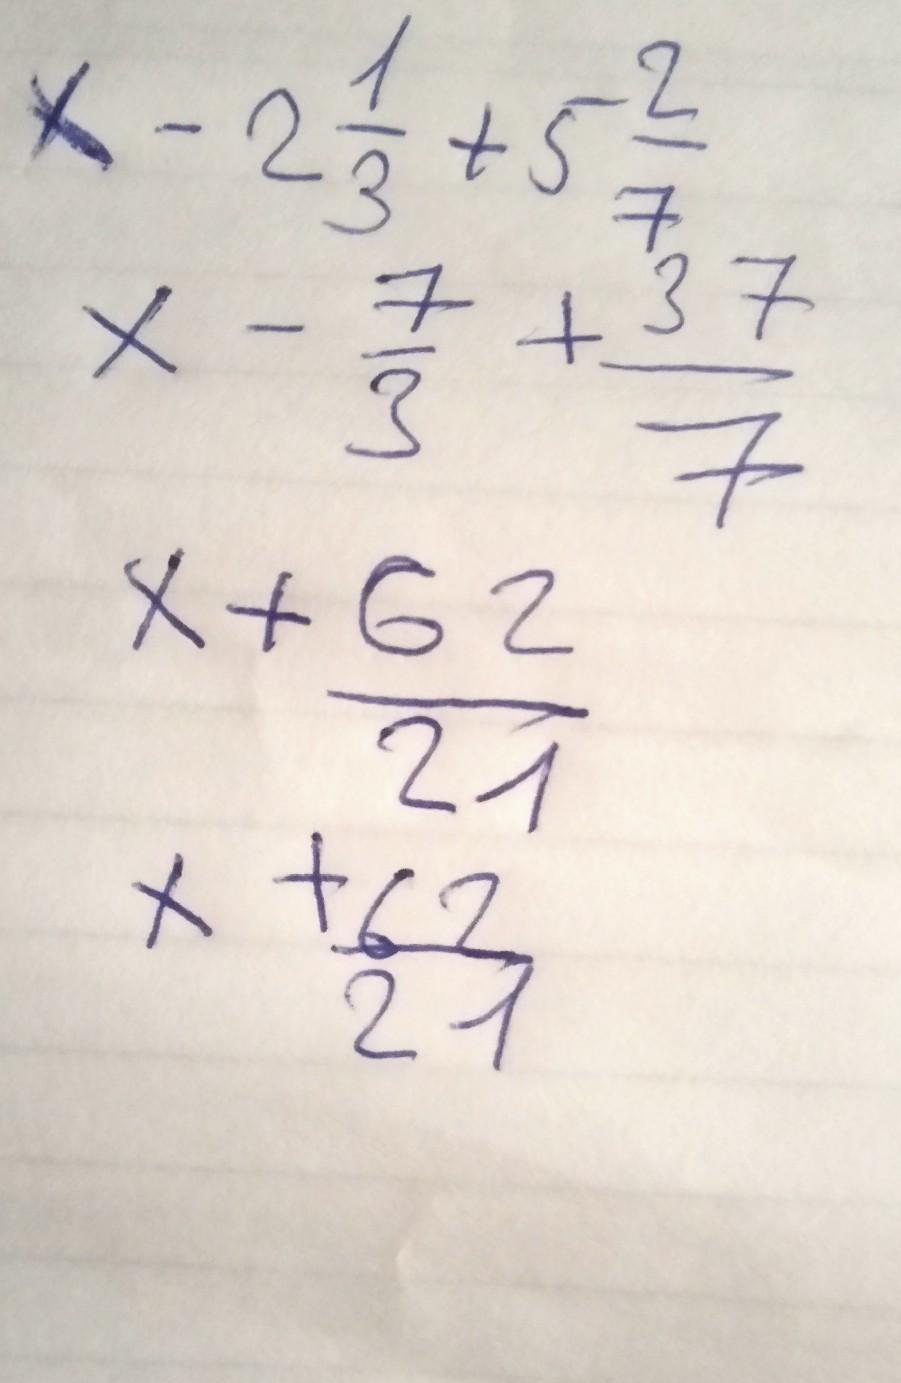 x - 2 1/3 + 5 2/7
x - 7/3 + 37/7
x + 62/21
x + 62/21